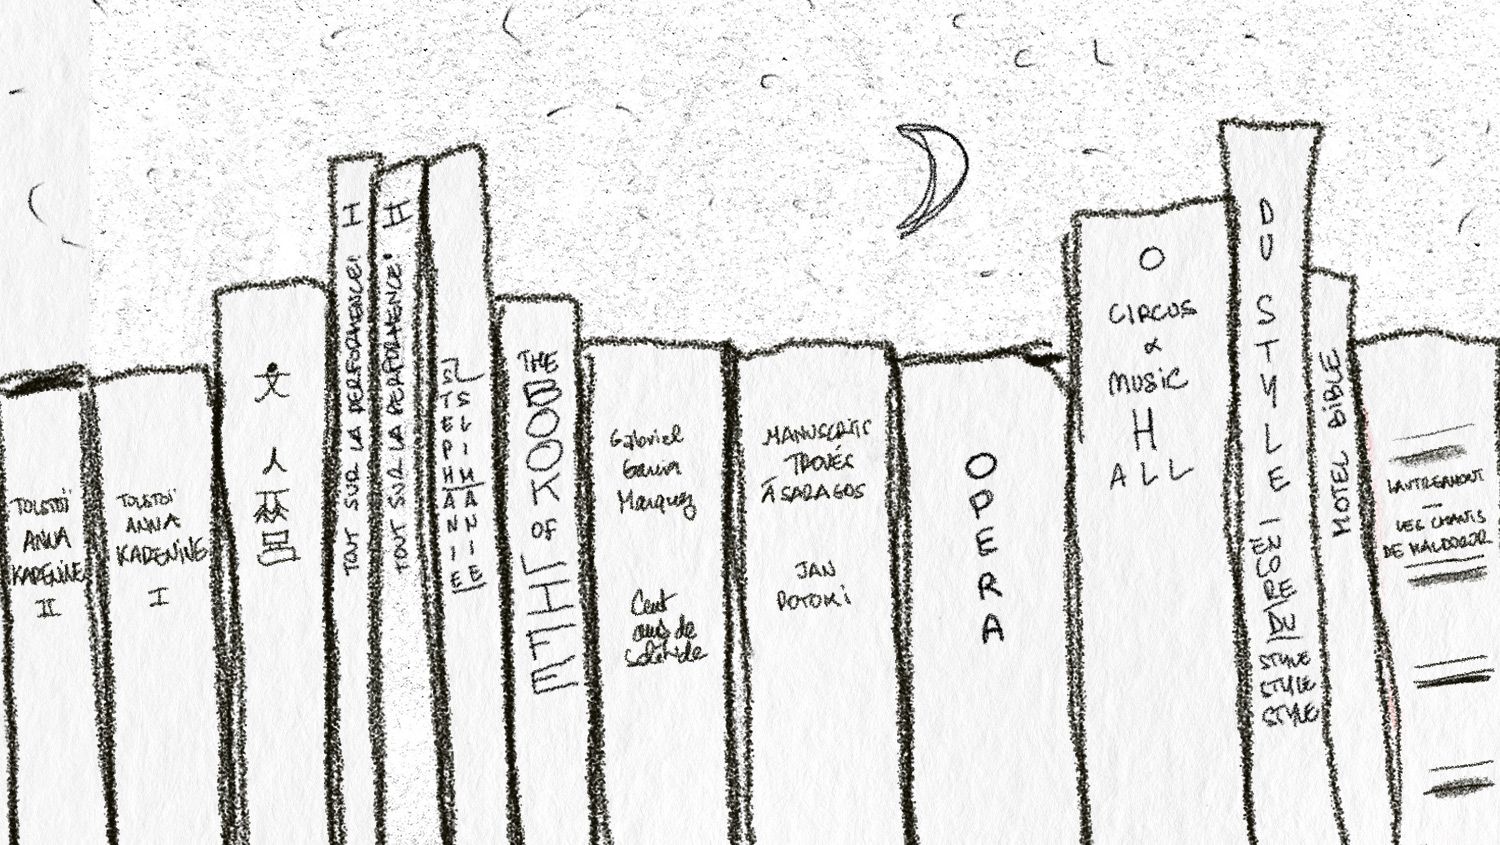 TOLSTOÏ
ANNA
KARENINE
II
TOLSTOÏ
ANNA
KARENINE
I
H
TOUT SUR LA PERFORMENCE!
H
TOUT SUR LA PERFORMENCE!
STEPHANIE
SLIMANIE
THE
BOOK
OF
LIFE
Gabriel
Garcia
Marquez
Cent
ans de
solitude
MANUSCRITS
TROVÉS
À SARAGOS
JAN
POTOKI
OPERA
O
CIRCUS
&
MUSIC
H
ALL
DU STYLE
ENCORE
DU
STYLE
STYLE
STYLE
MOTEL BIBLE
LAUTREAMONT
—
LES CHANTS
DE MALDOROR